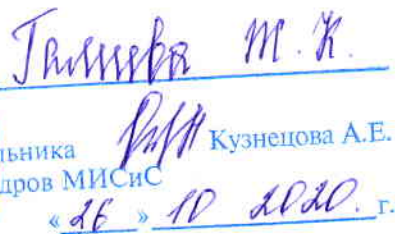 М. К.
льника Кузнецова А.Е.
дров МИСиС
«26» 10 2020. г.